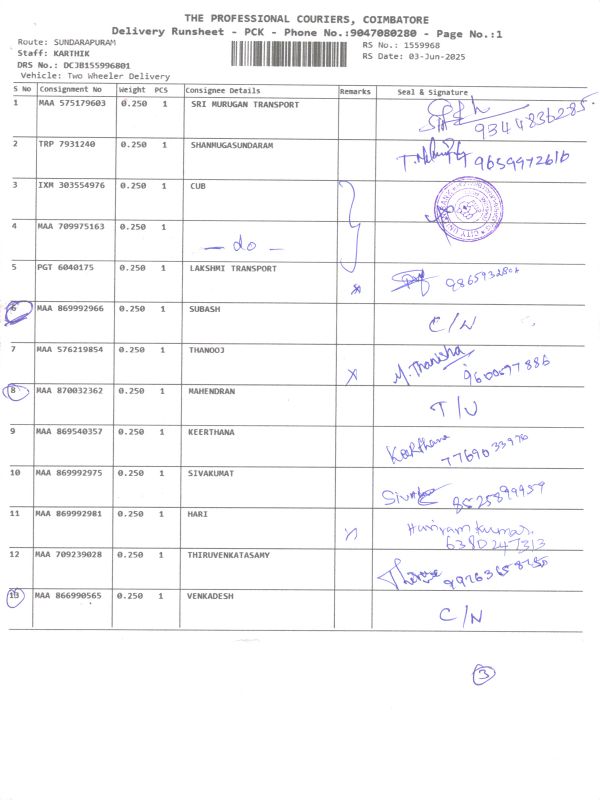 THE PROFESSIONAL COURIERS, COIMBATORE
Delivery Runsheet - PCK - Phone No.:9047080280 - Page No.:1
Route: SUNDARAPURAM
Staff: KARTHIK
DRS No.: DCJB155996801
Vehicle: Two Wheeler Delivery
RS No.: 1559968
RS Date: 03-Jun-2025
S No Consignment No Weight PCS Consignee Details Remarks Seal & Signature
1 MAA 575179603 0.250 1 SRI MURUGAN TRANSPORT
9344836285
2 TRP 7931240 0.250 1 SHANMUGASUNDARAM 9659972616
3 IXM 303554976 0.250 1 CUB
4 MAA 709975163 0.250 1
— do —
5 PGT 6040175 0.250 1 LAKSHMI TRANSPORT
6 MAA 869992966 0.250 1 SUBASH
C/N
7 MAA 576219854 0.250 1 THANOOJ
M. Thanisha
8 MAA 870032362 0.250 1 MAHENDRAN
T/U
9 MAA 869540357 0.250 1 KEERTHANA
Keerthana
7769033970
10 MAA 869992975 0.250 1 SIVAKUMAT
8525899959
11 MAA 869992981 0.250 1 HARI
Hariram Kumar.
6380247313
12 MAA 709239028 0.250 1 THIRUVENKATASAMY
13 MAA 866990565 0.250 1 VENKADESH
C/N
3